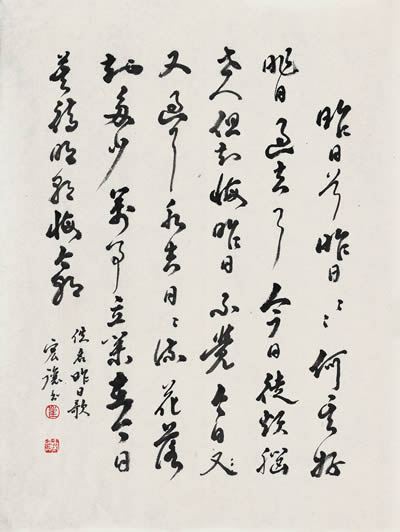 昨日兮昨日〻〻何其好
昨日過去了今日徒煩惱
世人但知悔昨日不覺今日又
又過了水去日〻流花落
知多少萬事立業在今日
莫待明朝悔今朝
佚名昨日歌
宏 書